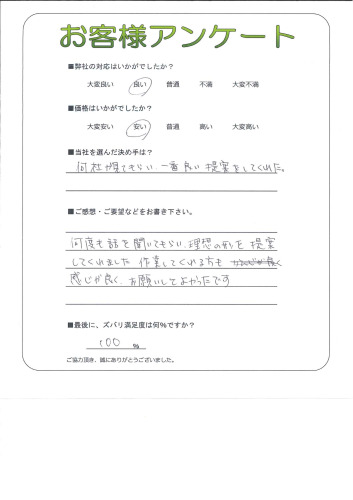 お客様アンケート
■弊社の対応はいかがでしたか？
大変良い 良い 普通 不満 大変不満
■価格はいかがでしたか？
大変安い 安い 普通 高い 大変高い
■当社を選んだ決め手は？
何社か見てもらい、一番良い提案をしてくれた。
■ご感想・ご要望などをお書き下さい。
何度も話を聞いてもらい、理想の形を提案
してくれました 作業してくれる方も
感じが良く、お願いしてよかたです
■最後に、ズバリ満足度は何％ですか？
100 ％
ご協力頂き、誠にありがとうございました。